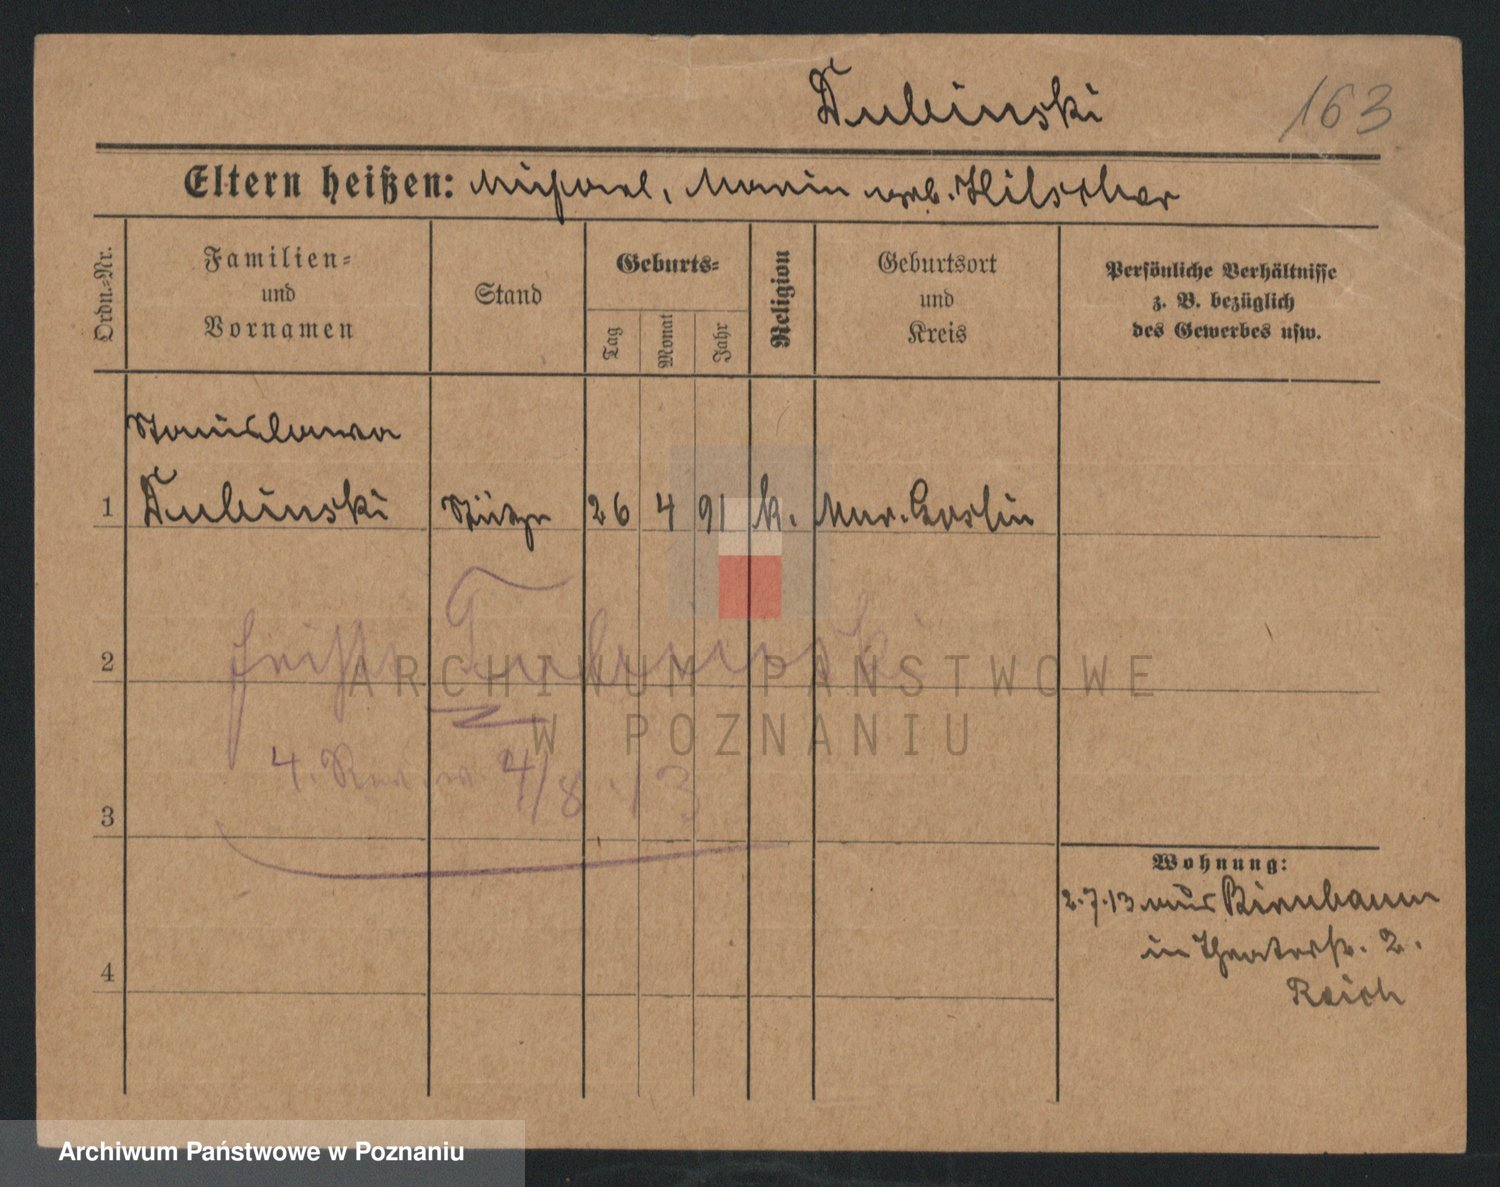 Dubinski 163
Eltern heißen: Michael, Maria geb. Hilscher
Ordn.-Nr.
Familien-
und
Vornamen
Stand
Geburts-
Tag
Monat
Jahr
Religion
Geburtsort
und
Kreis
Persönliche Verhältnisse
z. B. bezüglich
des Gewerbes usw.
Stanislawa
1 Dubinski Stütze 26 4 91 k. Mur. Goslin
2
4. Rev. 4/8.13
3
Wohnung:
2.7.13 aus Birnbaum
in Theaterstr. 2.
4
Reich
ARCHIWUM PAŃSTWOWE
W POZNANIU
Archiwum Państwowe w Poznaniu